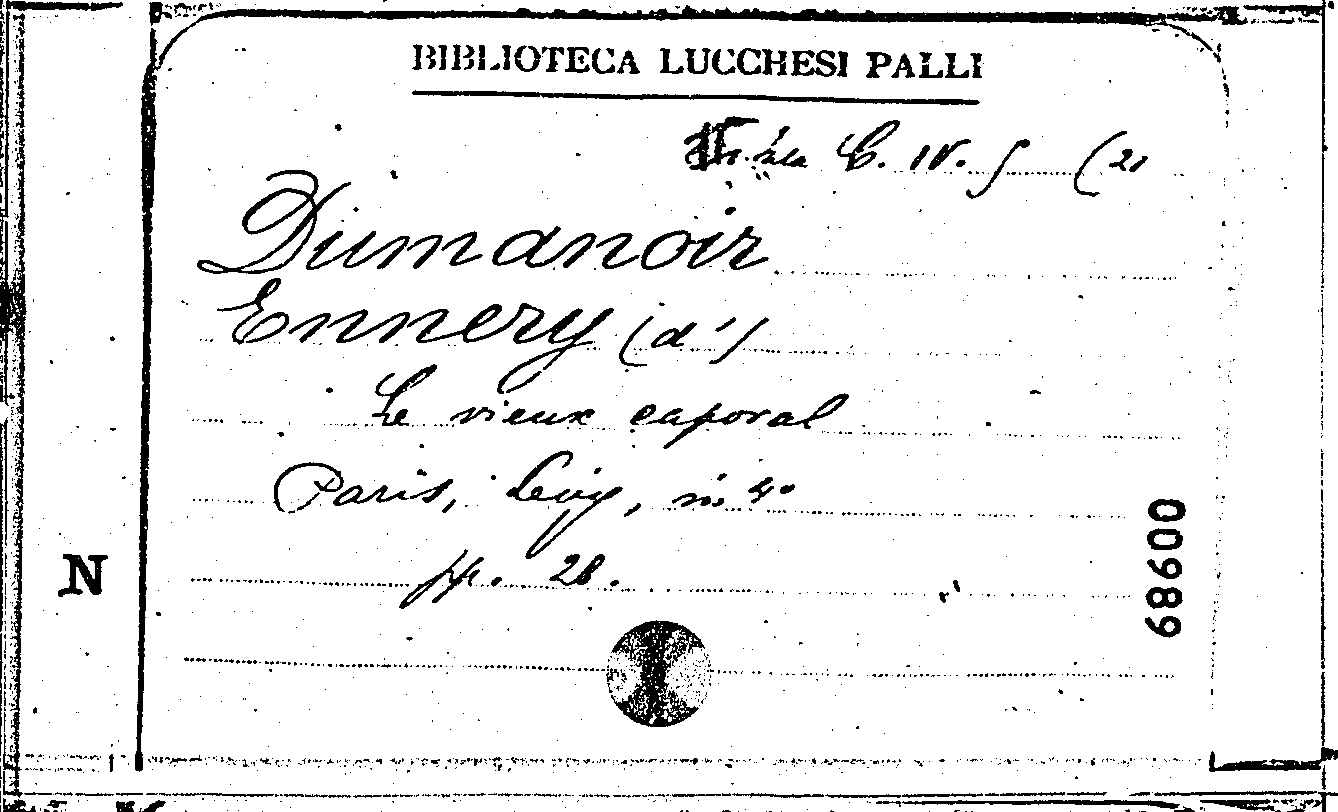 BIBLIOTECA LUCCHESI PALLI
C. IV. 5 (21
Dumanoir
Ennery (d')
Le vieux caporal
Paris, Levy, in 4°
pp. 28.
N
00989